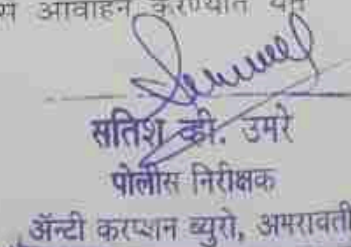 स आवाहन करण्यात येत
सतिश व्ही. उमरे
पोलीस निरीक्षक
ॲन्टी करप्शन ब्युरो, अमरावती